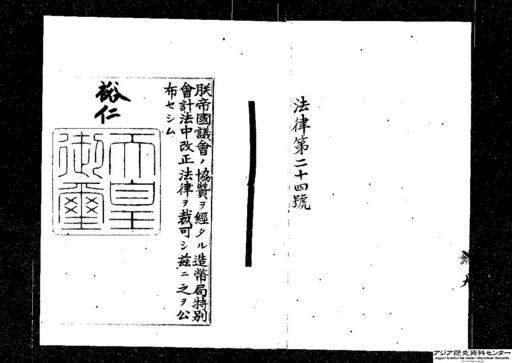 法律第二十四號
朕帝國議會ノ協贊ヲ經タル造幣局特別
會計法中改正法律ヲ裁可シ茲ニ之ヲ公
布セシム
裕仁
天皇
御璽
アジア歴史資料センター
Japan Center for Asian Historical Records